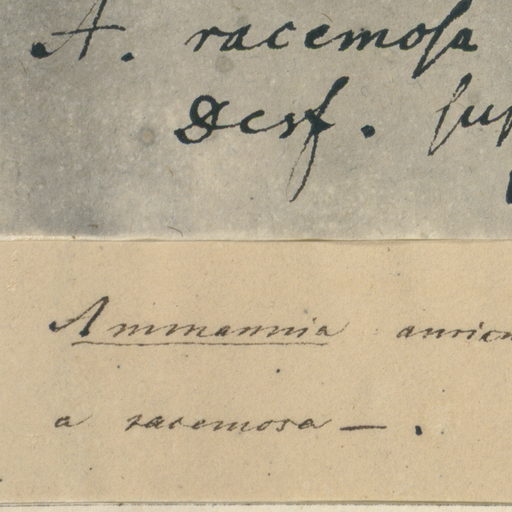 A. racemosa
Desf. sup
Ammannia auricu
a racemosa — .